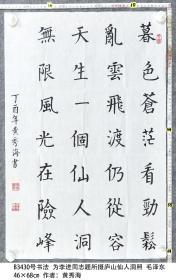 暮色蒼茫看勁鬆
亂雲飛渡仍從容
天生一個仙人洞
無限風光在險峰
丁酉年黄秀海書
83430号书法 为李进同志题所摄庐山仙人洞照 毛泽东
46×68cm 作者：黄秀海